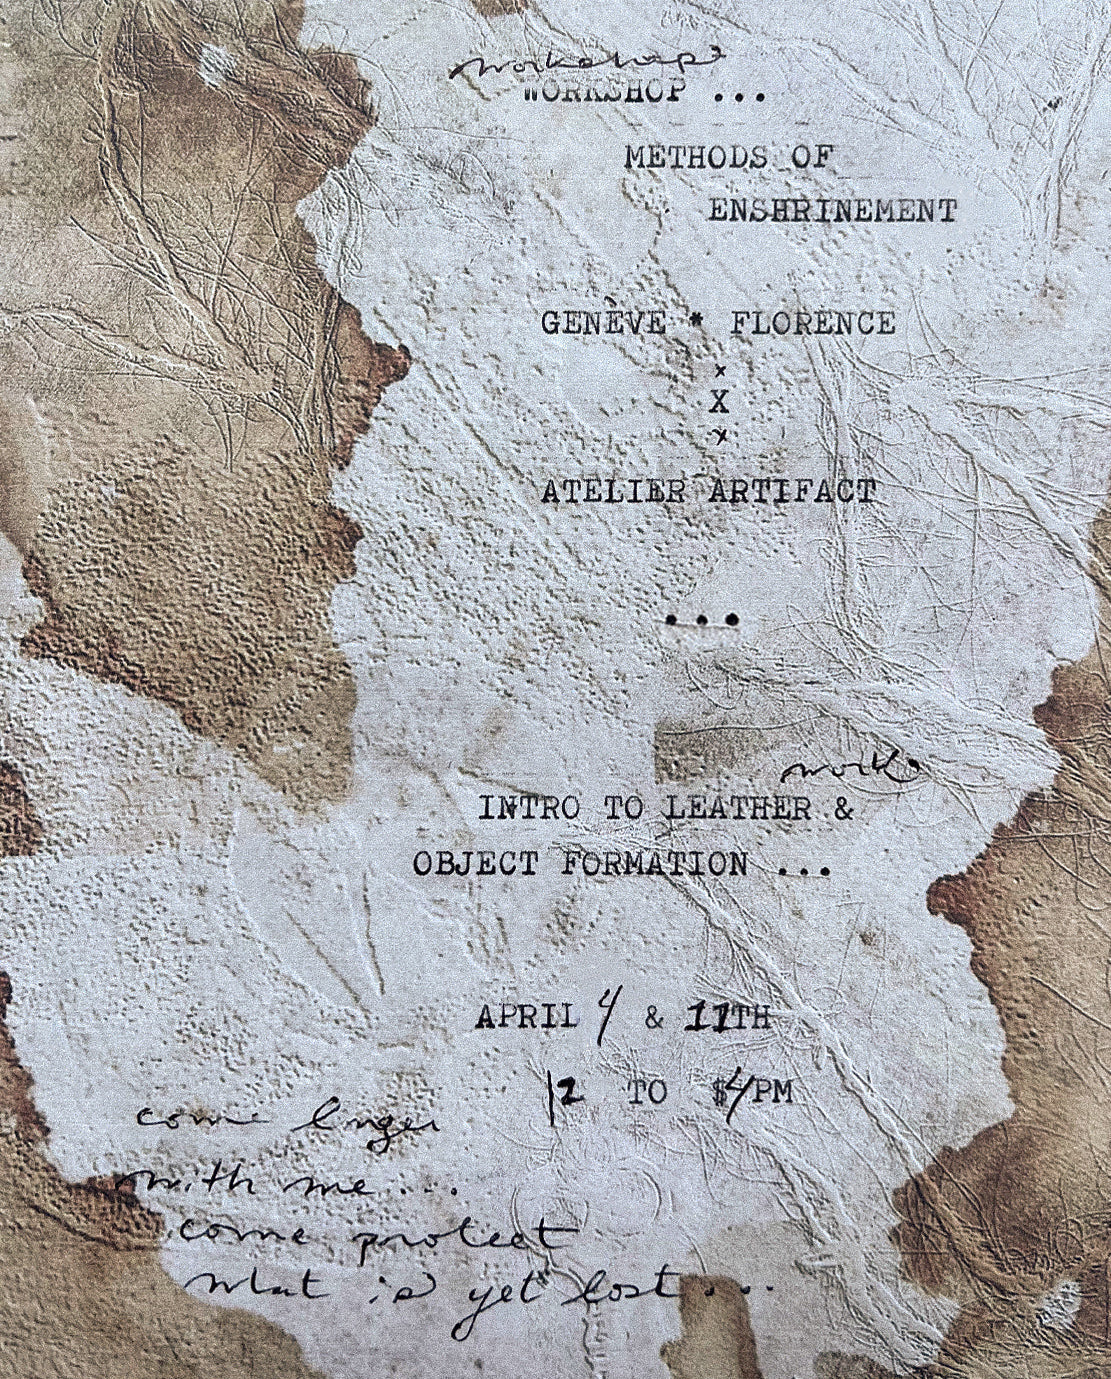 workshop
WORKSHOP ...
METHODS OF
ENSHRINEMENT
GENÈVE * FLORENCE
x
X
x
ATELIER ARTIFACT
...
work
INTRO TO LEATHER &
OBJECT FORMATION ...
APRIL 4 & 11TH
12 TO $4PM
come linger
with me ...
come protect
what is yet lost ...